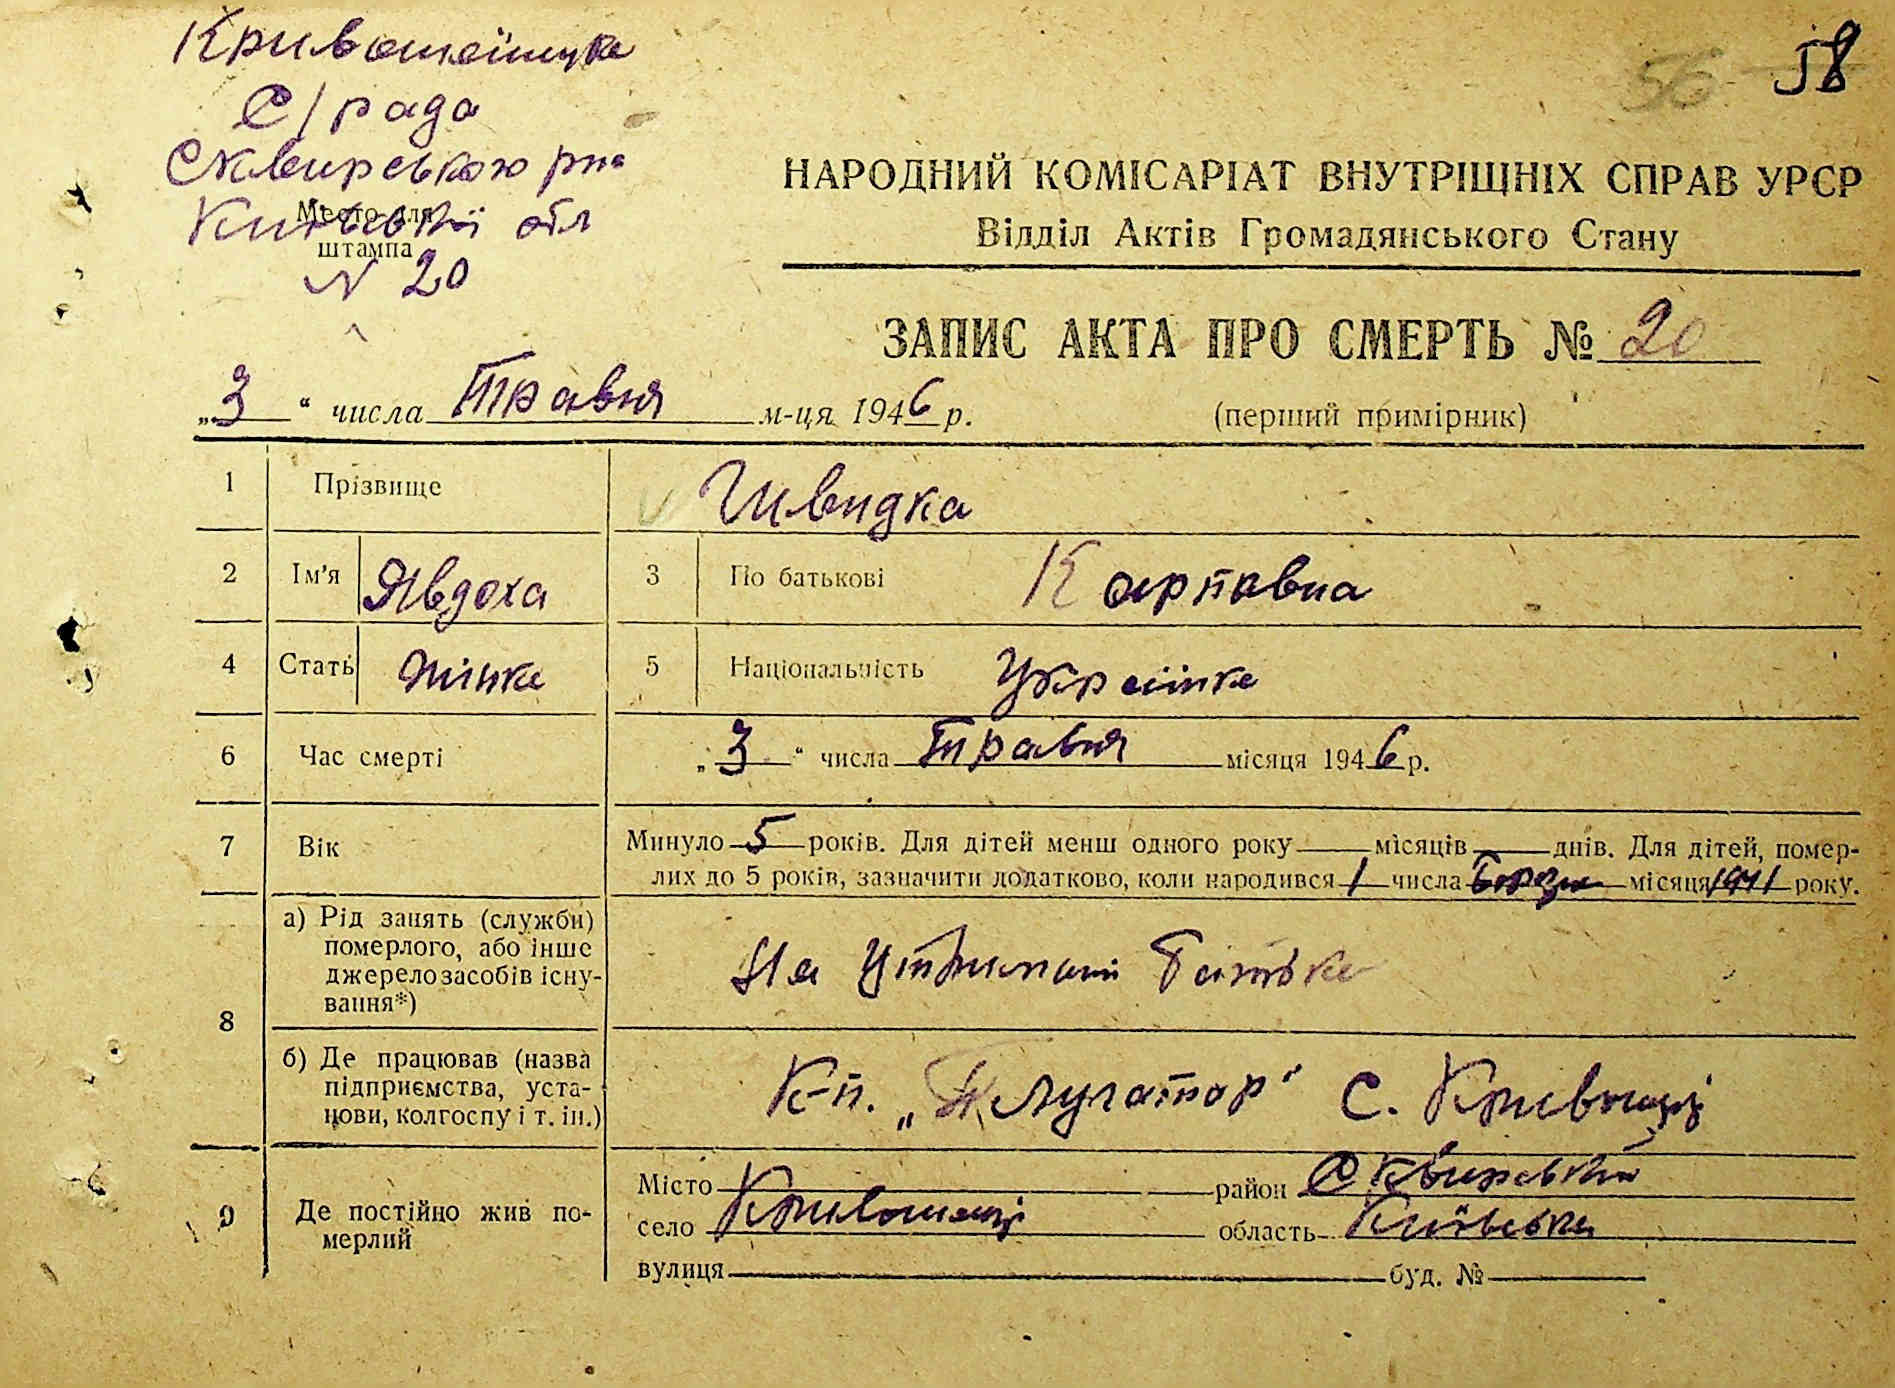 Кривошеїнцька
С/рада
Сквирського р-на
Київської обл
Место для
штампа
N 20
56 58
НАРОДНИЙ КОМІСАРІАТ ВНУТРІЩНІХ СПРАВ УРСР
Відділ Актів Громадянського Стану
ЗАПИС АКТА ПРО СМЕРТЬ № 20
„3“ числа Травня м-ця 1946 р.
(перший примірник)
1 Прізвище Швидка
2 Ім'я Явдоха 3 По батькові Карповна
4 Стать жінка 5 Національність Українка
6 Час смерті „3“ числа Травня місяця 1946 р.
7 Вік Минуло 5 років. Для дітей менш одного року — місяців — днів. Для дітей, помер-
лих до 5 років, зазначити додатково, коли народився 1 числа Березня місяця 1941 року.
8 а) Рід занять (служби)
померлого, або інше
джерело засобів існу-
вання*)
На утриманні Батька
б) Де працював (назва
підприємства, уста-
нови, колгоспу і т. ін.)
К-п. „Плугатор" С. Кривошеїнці
9 Де постійно жив по-
мерлий
Місто — район Сквирський
село Кривошеїнці область Київська
вулиця — буд. № —